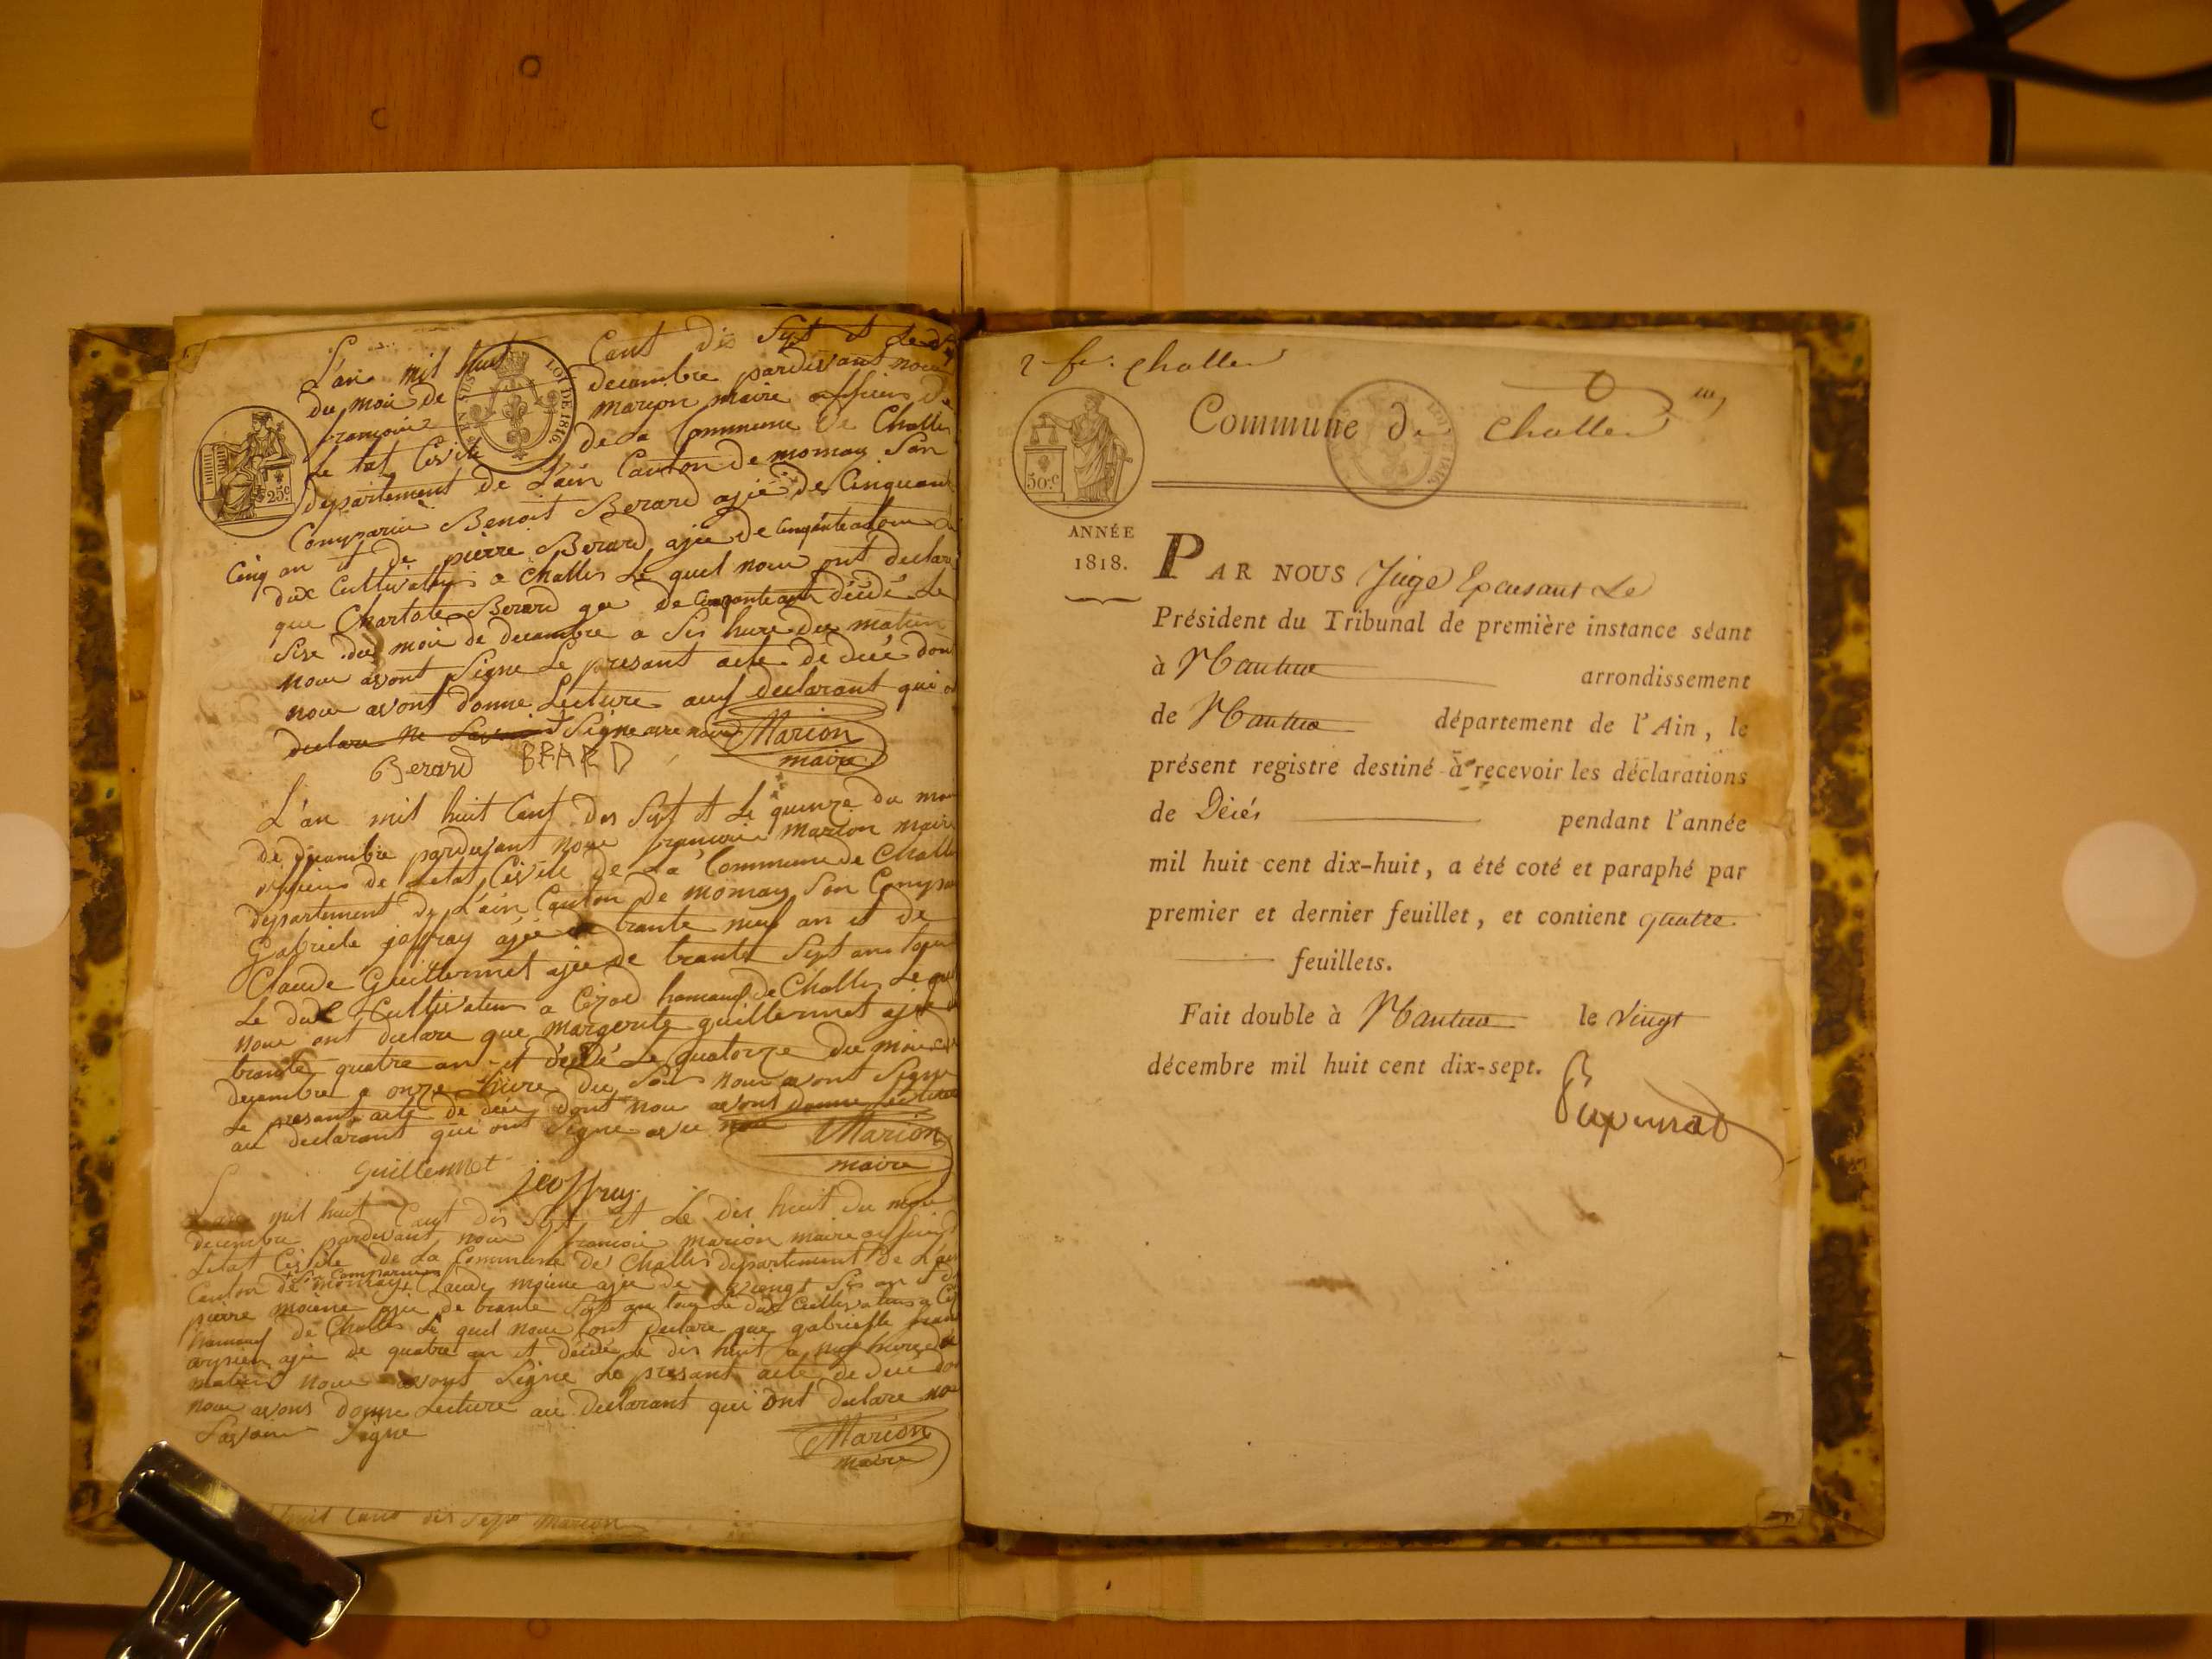 L'an mil huit Cent dis Sept et le
du moi de decambre pardevant nou
francoui marion maire officier de
Le tat Civile de La Commune de Challes
departement de L'ain Canton de mornay Son
Comparue Benoit Berard ajée de Cinquante
Cinq an et de pierre Berard ajée de
dux Cultivateurs a Challes Le quel nou ont declare
que Berard de décédé Le
Sise du moi de decambre a Sis hure du matien
nou avont Signe Le presant acte de décé dont
nou avont donne Lecture aux declarant qui
declare ne Savoir Signe
Marion
Berard BRARD maire
L'an mil huit Cent dis Sept et Le quinze du moi
de decambre pardevant nou francoui marion maire
officier de Letat Civile de La Commune de Challe
departement de L'ain Canton de mornay Son Compar
Gabriele joffray ajée de trante neuf an et de
Claude Guillermet ajée de trante Sept an
Le dux Cultivateur a hamaux de Challes Le quel
nou ont declare que margerite guillermet ajée
trante quatre an et décédé Le quatorze du moi
decembre a onze hure du Soir nou avont Signe
Le presant acte de décé dont nou avons donne Lecture
au declarant qui ont Signe avec nou Marion
maire
Guillermet jeoffray
mil huit Cent dis Sept et Le dis huit du moi
decembre pardevant nou francoui marion maire officier
Letat Civile de La Commune de Challes departement de L'ain
Son Comparue
Canton de mornay Claude moiene ajée de vengt Sis an
pierre moiene ajée de trante Sept an Le dux Cultivateurs a
hamaux de Challes Le quel nou font declare que gabrielle
ajée de quatre an et décédé Le dis huit a neuf hure
matien nou avont Signe Le presant acte de décé
nou avons donne Lecture au declarant qui ont declare ne
Savoir Signe
Marion
maire
huit Cent dis Sept Marion
LOI DE 1816.
25.c
Challes
Commune de Challes
50.c
LOI DE 1816.
ANNÉE
1818.
PAR NOUS Juge Exersant Le
Président du Tribunal de première instance séant
à Nantua arrondissement
de Nantua département de l'Ain, le
présent registre destiné à recevoir les déclarations
de Décés pendant l'année
mil huit cent dix-huit, a été coté et paraphé par
premier et dernier feuillet, et contient quatre
feuillets.
Fait double à Nantua le vingt
décembre mil huit cent dix-sept.